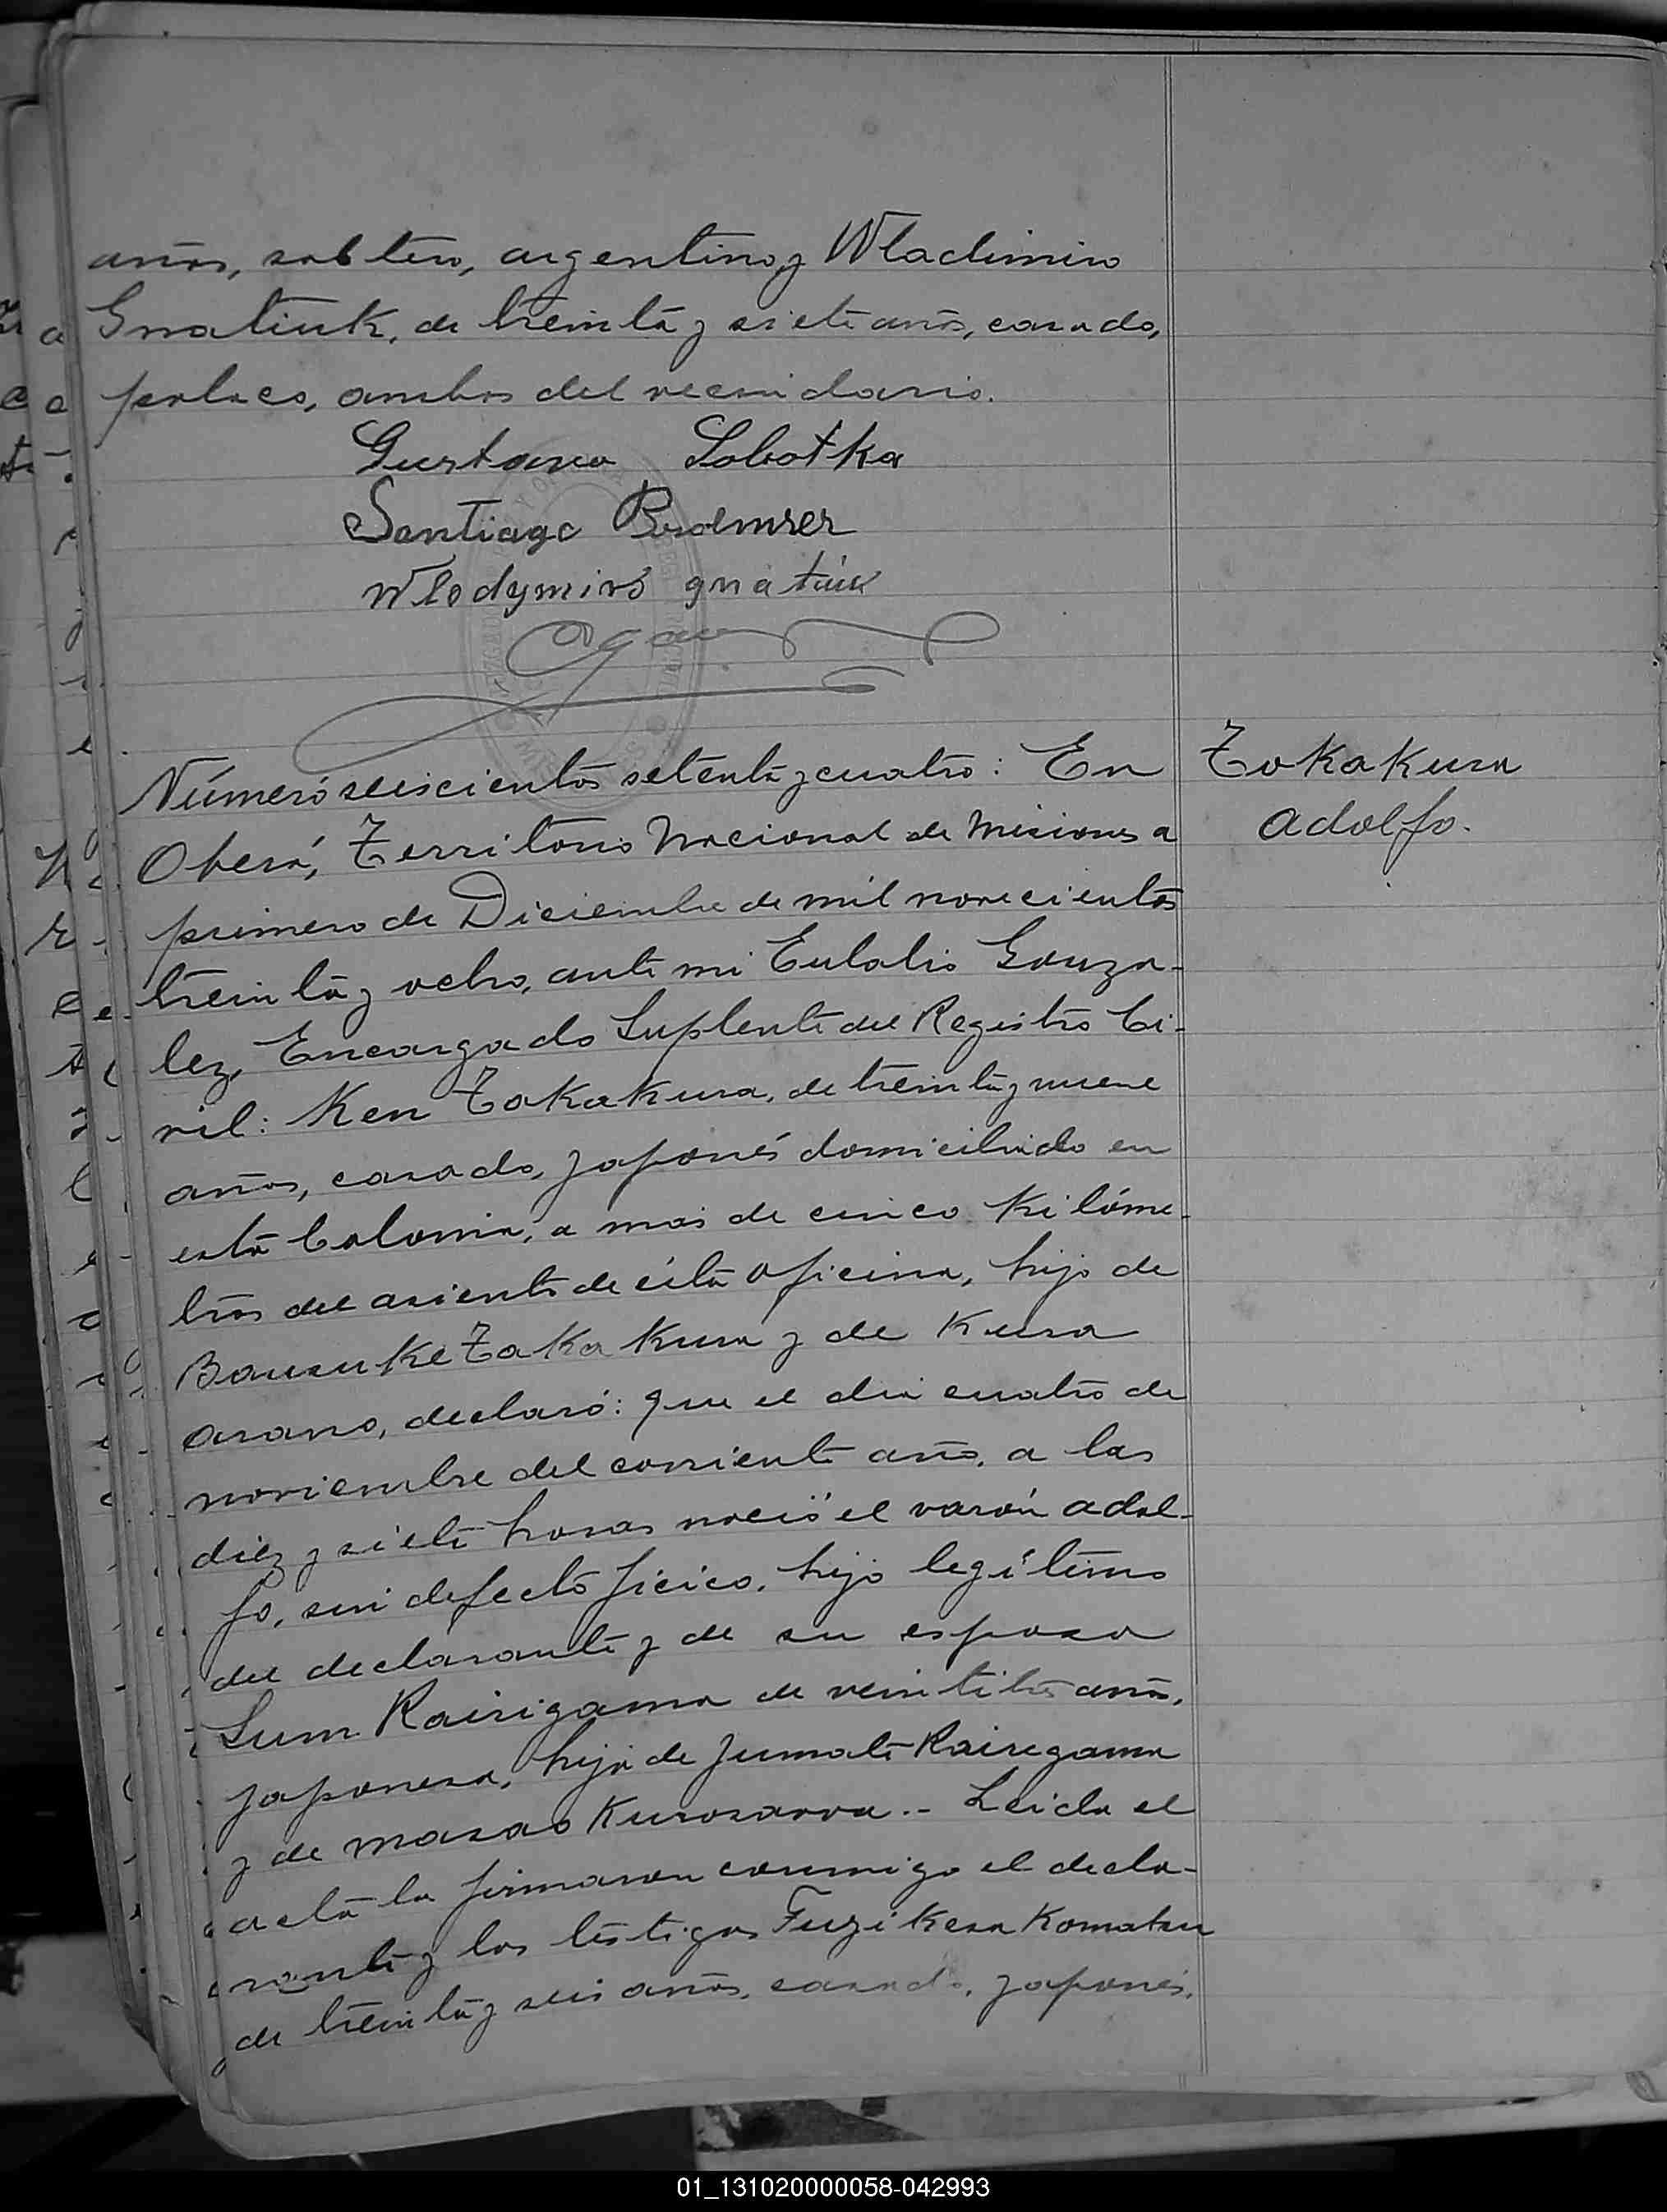 años, soltero, argentino y Wladimiro
Gnatiuk, de treinta y siete años, casado,
polaco, ambos del vecindario.
Gustavo Sobotka
Santiago
Wlodymiro gnatiuk
Número seiscientos setenta y cuatro: En
Oberá, Territorio Nacional de Misiones a
primero de Diciembre de mil novecientos
treinta y ocho, ante mi Eulalio Gonza-
lez, Encargado Suplente del Registro Ci-
vil: Ken Takakura, de treinta y nueve
años, casado, japonés domiciliado en
esta Colonia, a mas de cinco kilóme-
tros del asiento de ésta oficina, hijo de
Bausuke Takakura y de Kusa
Asano, declaró: que el dia cuatro de
noviembre del corriente año, a las
diez y siete horas nació el varón Adol-
fo, sin defecto fisico, hijo legítimo
del declarante y de su esposa
Sum Rairigama de veintitres años,
japonesa, hija de Jumate Rairegama
y de Masao Kurosawa.- Leida el
acta la firmaron conmigo el decla-
rante y los testigos Fuzikesa Komatsu
de treinta y seis años, casado, japonés,
Takakura
Adolfo.
01_131020000058-042993